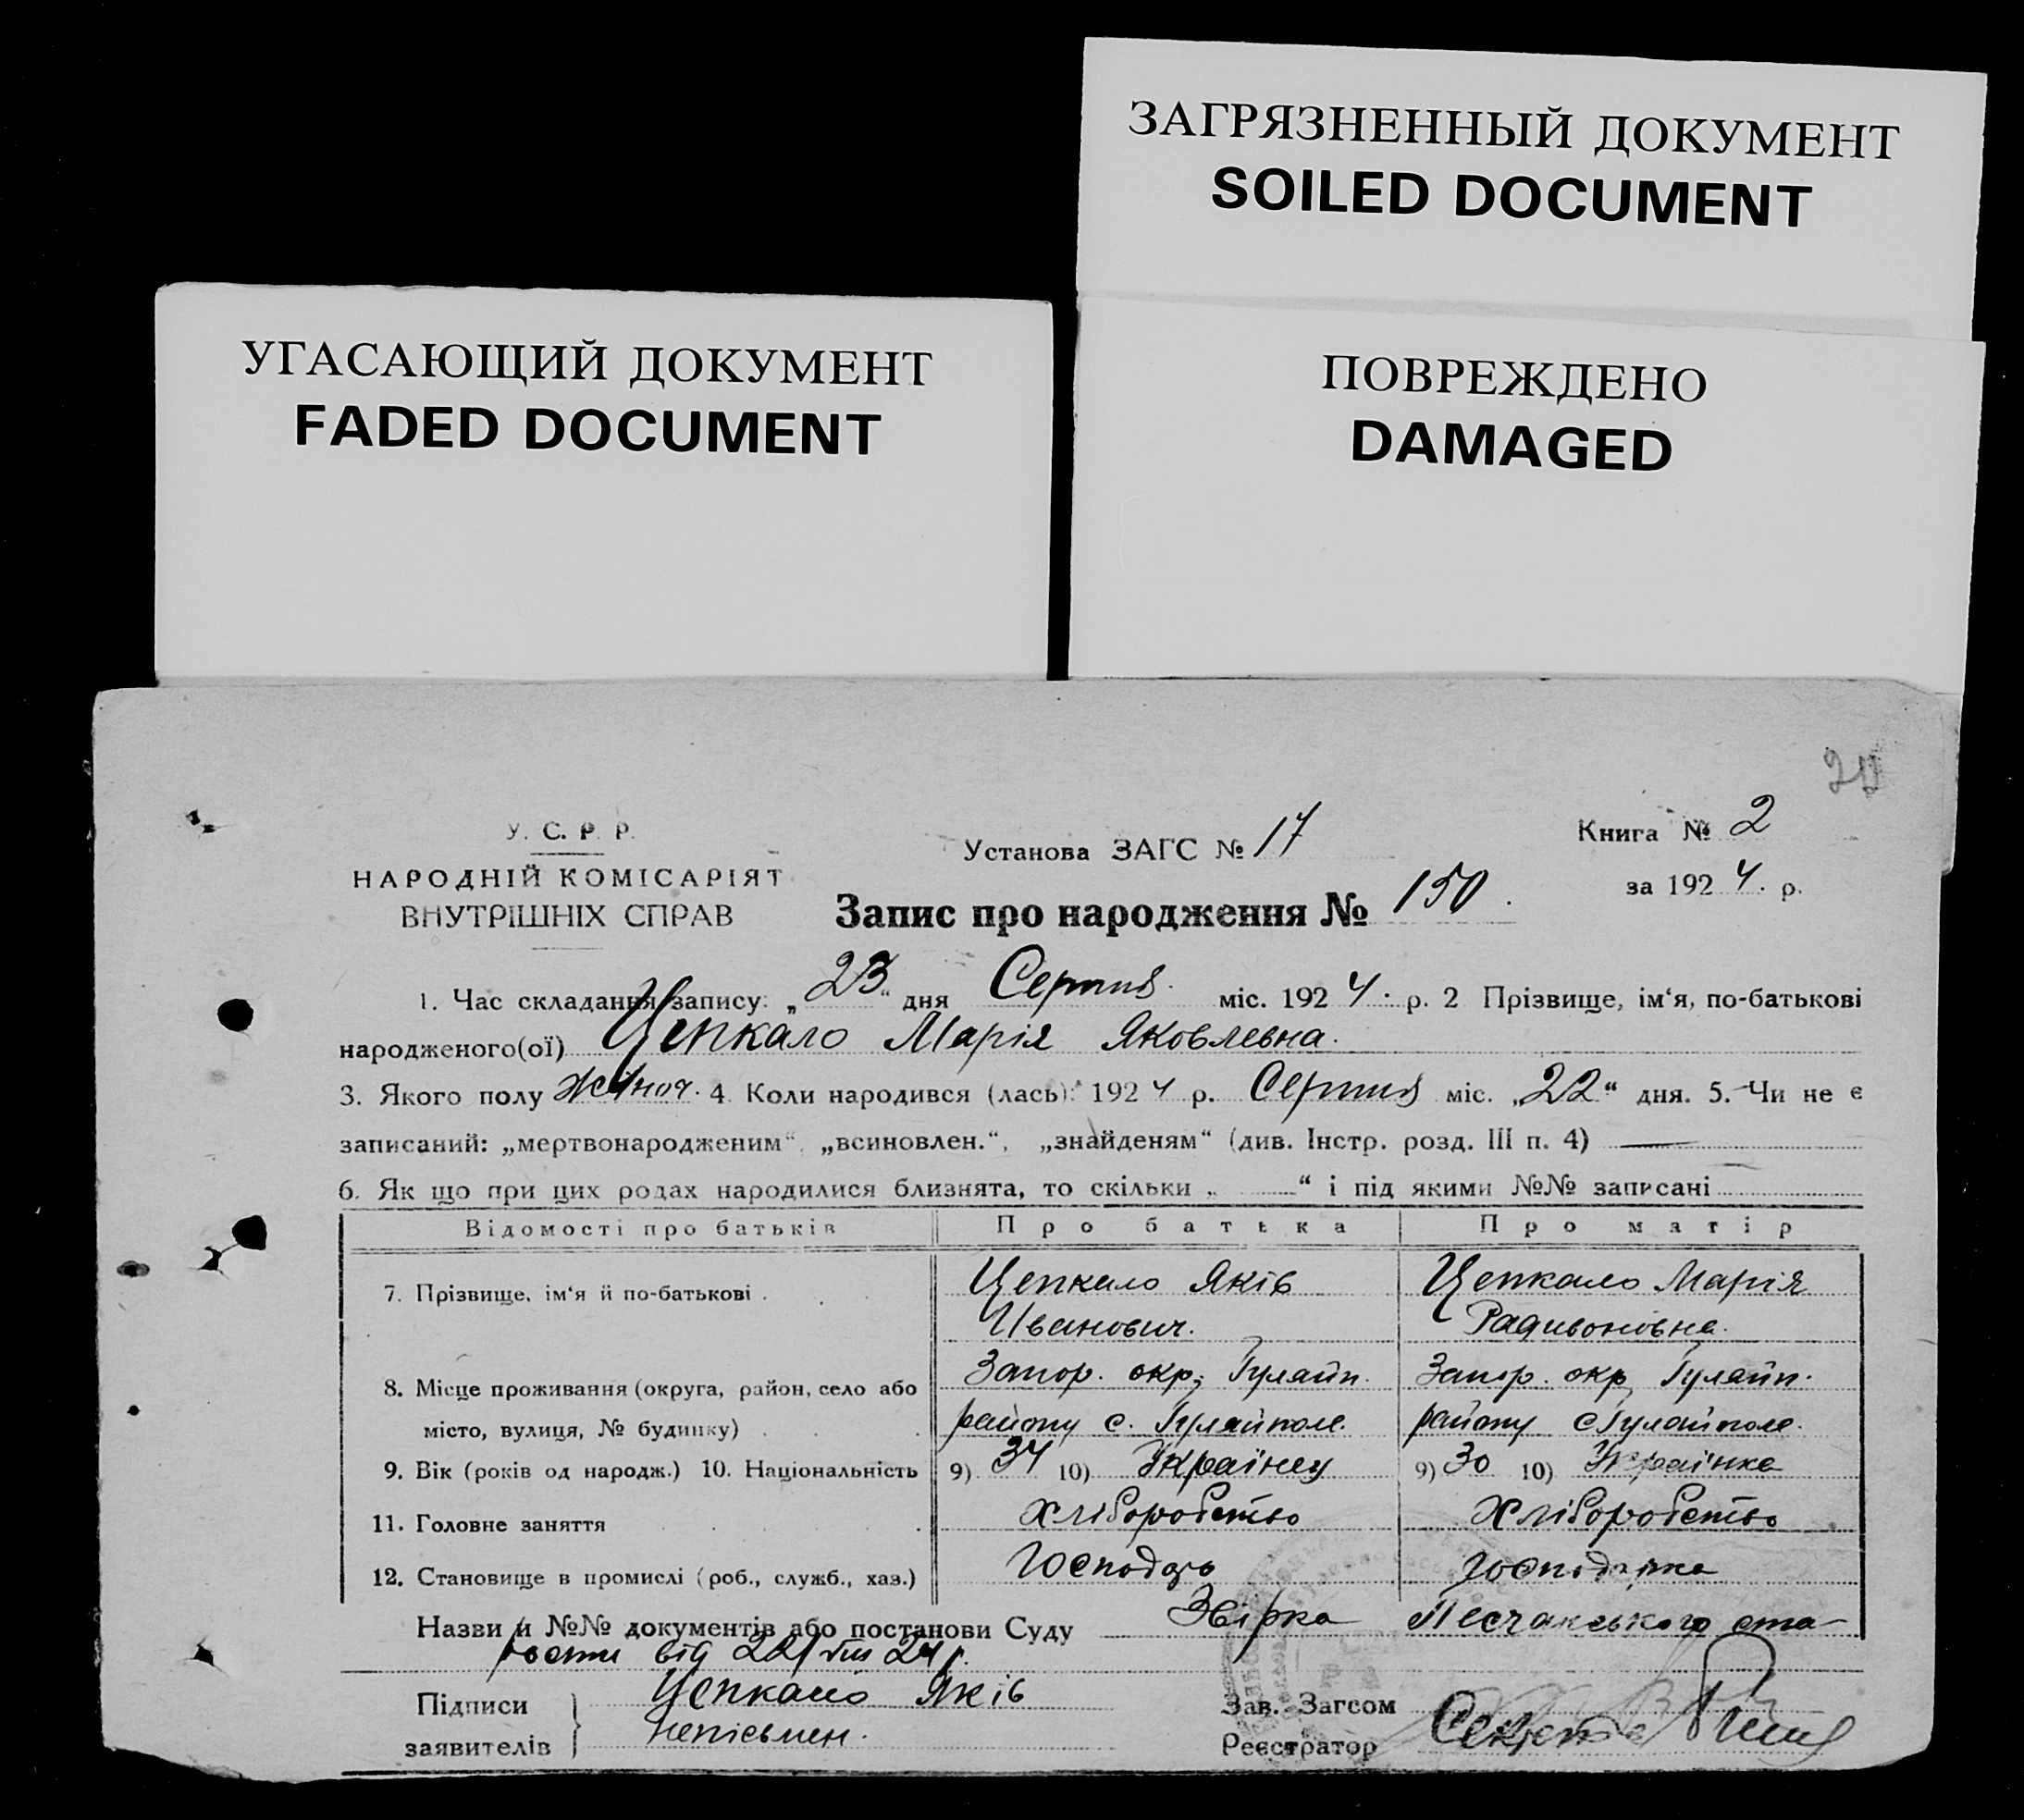 ЗАГРЯЗНЕННЫЙ ДОКУМЕНТ
SOILED DOCUMENT
УГАСАЮЩИЙ ДОКУМЕНТ
FADED DOCUMENT
ПОВРЕЖДЕНО
DAMAGED
У. С. Р. Р.
НАРОДНІЙ КОМІСАРІЯТ
ВНУТРІШНІХ СПРАВ
Установа ЗАГС № 17
Книга № 2
за 1924. р.
Запис про народження № 150.
1. Час складання запису: „23“ дня Серпня міс. 1924. р. 2 Прізвище, ім‘я, по-батькові
народженого(ої) Цепкало Марія Яковлевна.
3. Якого полу жіноч. 4. Коли народився (лась): 1924 р. Серпня міс. „22“ дня. 5. Чи не є
записаний: „мертвонародженим“, „всиновлен.“, „знайденям“ (див. Інстр. розд. III п. 4)
6. Як що при цих родах народилися близнята, то скільки „ “ і під якими №№ записані
Відомості про батьків Про батька Про матір
7. Прізвище, ім‘я й по-батькові Цепкало Яків Цепкало Марія
Иванович. Радивоновна.
8. Місце проживання (округа, район, село або Запор. окр, Гуляйп. Запор. окр, Гуляйп.
місто, вулиця, № будинку) району с. Гуляйполе. району с Гуляйполе.
9. Вік (років од народж.) 10. Національність 9) 34 10) Українец 9) 30 10) Українка
11. Головне заняття Хліборобство Хліборобство
12. Становище в промислі (роб., служб., хаз.) Господарь Господарка
Назви й №№ документів або постанови Суду Звірка Песчанського ста-
рости від
Підписи Цепкало Яків Зав. Загсом
заявителів неписьмен. Реєстратор